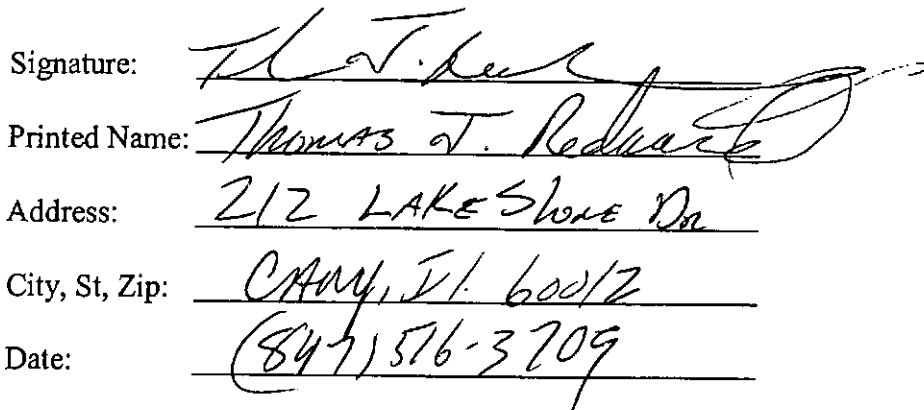 Signature:
Printed Name: Thomas J.
Address: 212 LAKE Shore Dr
City, St, Zip: CARY, Il. 60012
Date: (847) 516-3709